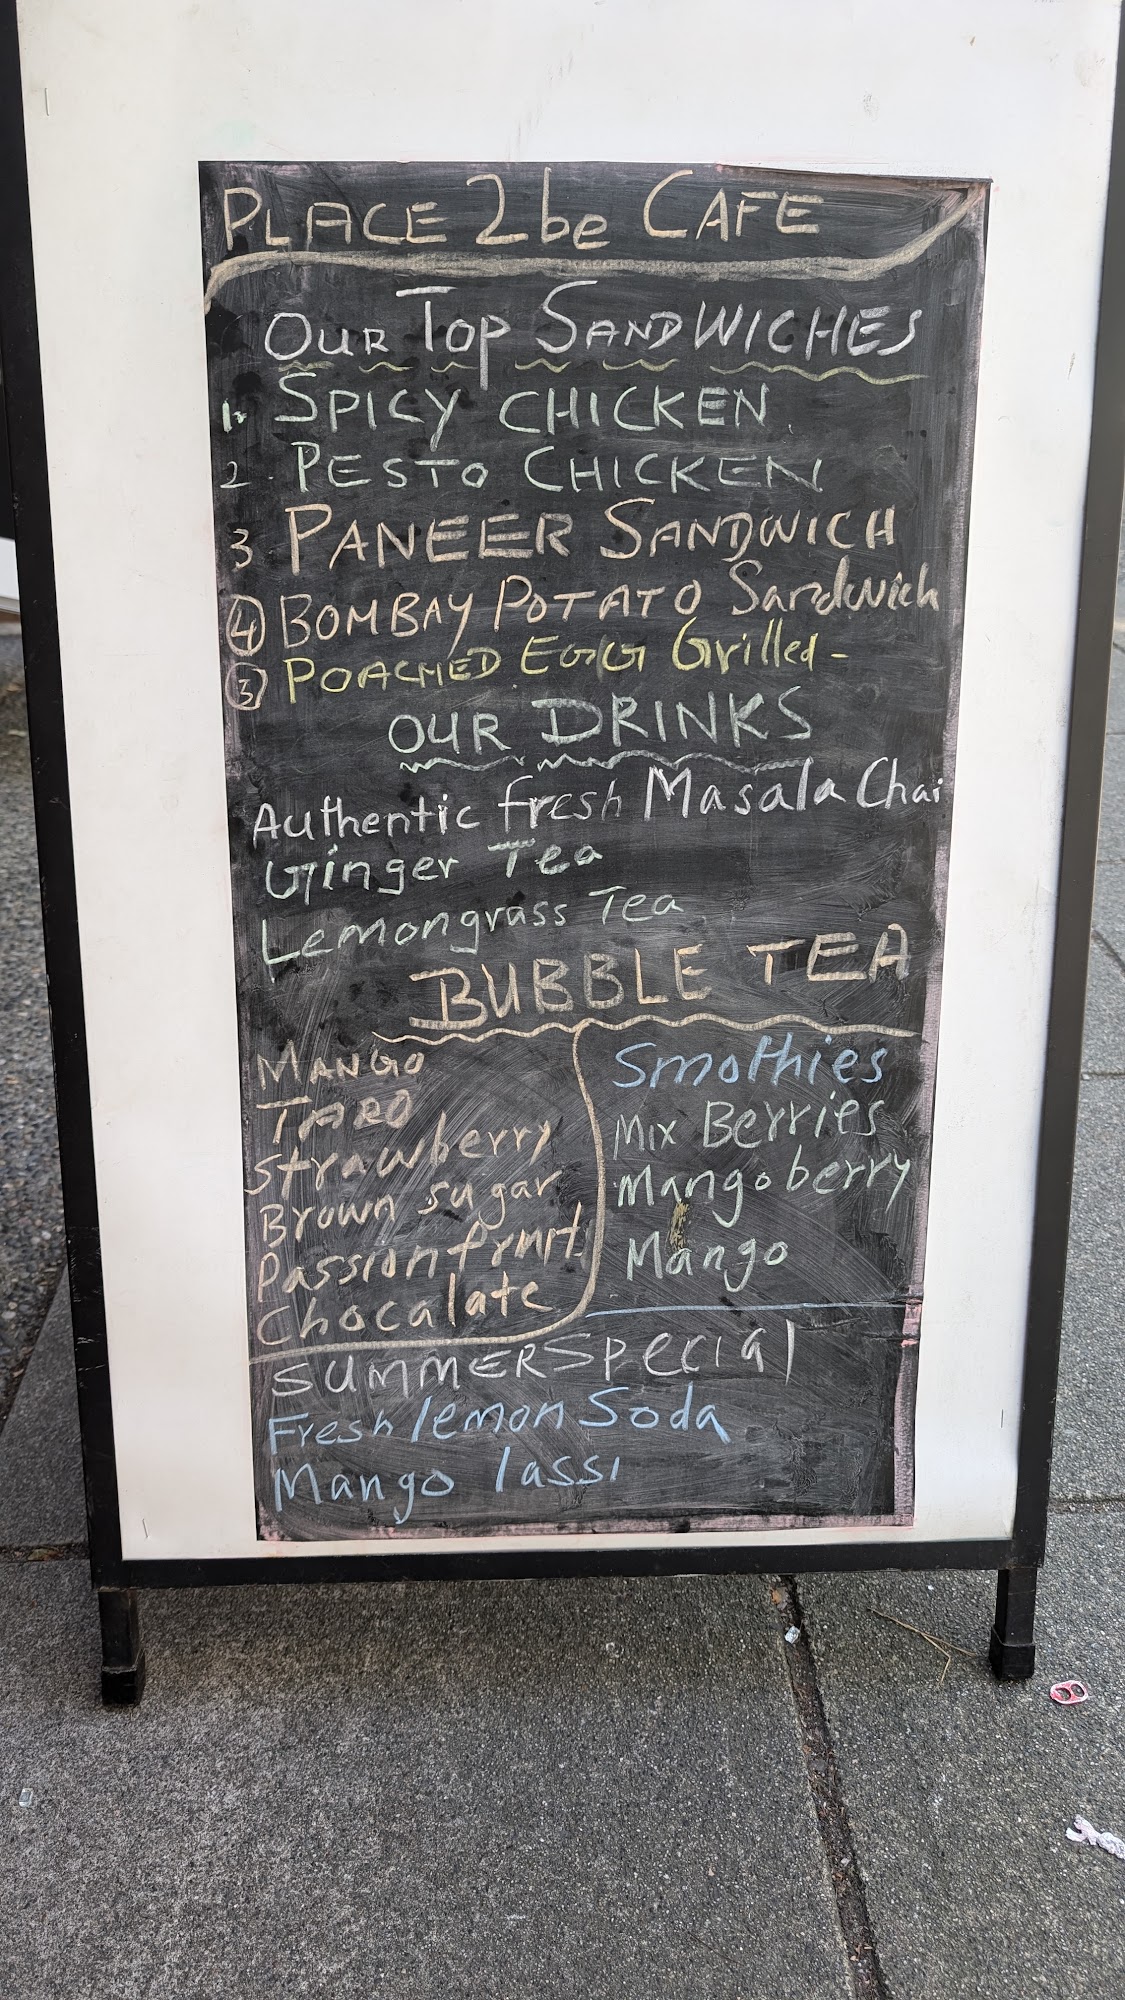 PLACE 2be CAFE
OUR TOP SANDWICHES
1. SPICY CHICKEN.
2. PESTO CHICKEN
3 PANEER SANDWICH
4 BOMBAY POTATO Sandwich
5 POACHED EGG Grilled -
OUR DRINKS
Authentic fresh Masala Chai
Ginger Tea
Lemongrass Tea
BUBBLE TEA
MANGO
TARO
Strawberry
Brown sugar
Passionfruit
Chocalate
Smothies
Mix Berries
Mangoberry
Mango
SUMMER Special
Fresh lemon Soda
Mango lassi